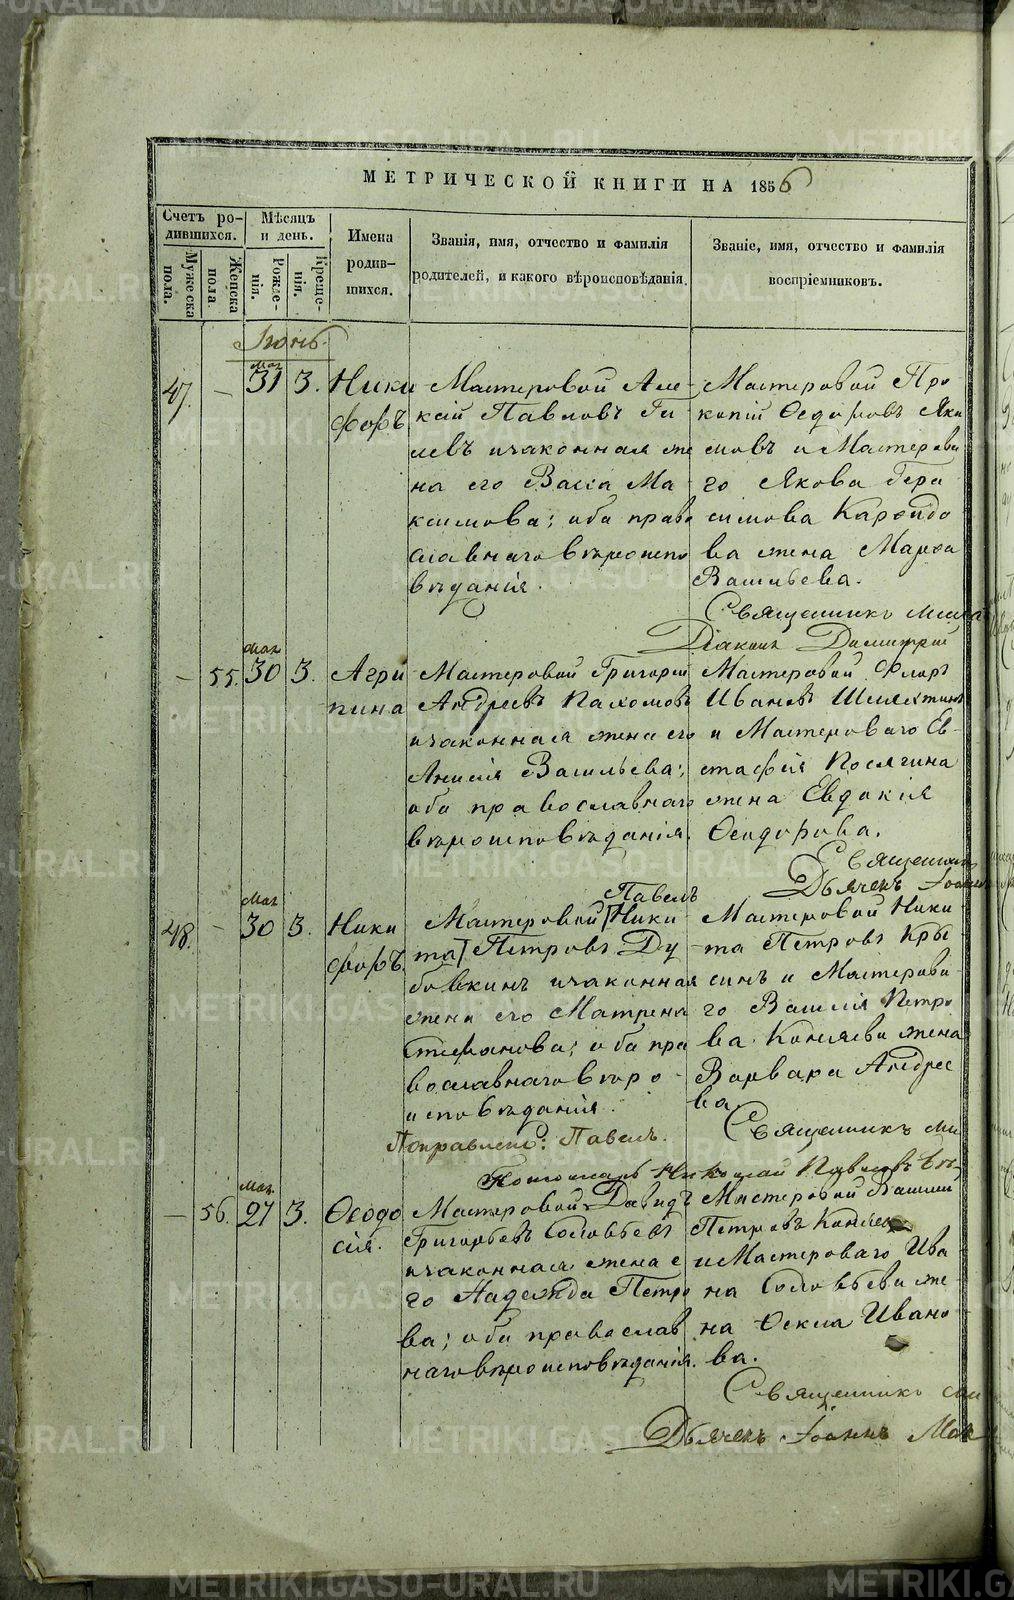 МЕТРИЧЕСКОЙ КНИГИ НА 1856
Счетъ ро-
дившихся.
Мужеска
пола.
Женска
пола.
Мѣсяцъ
и день.
Рожде-
нія.
Креще-
нія.
Имена
родив-
шихся.
Званія, имя, отчество и фамилія
родителей, и какого вѣроисповѣданія.
Званіе, имя, отчество и фамилія
воспріемниковъ.
Іюнь.
47. - Мая 31 3. Ники
форъ
Мастеровой Але-
ксій Павловъ
левъ и законная же
на его Васса Ма-
ксимова; оба право
славнаго вѣроиспо
вѣданія.
Мастеровой Про-
копій Ѳедоровъ Яки
мовъ и Мастерова-
го Якова Гера
симова
ва жена Марѳа
Васильева.
Священникъ
Діаконъ Димитрій
- 55. Мая 30 3. Агри
пина
Мастеровой Григорій
Андреевъ Пахомовъ
и законная жена его
Анисія Васильева;
оба православнаго
вѣроисповѣданія.
Мастеровой Флоръ
Ивановъ
и Мастероваго Ев-
стафія Посягина
жена Евдокія
Ѳеодорова.
Священникъ
Дьячекъ Іоаннъ
48. - Мая 30 3. Ники
форъ.
Павелъ
Мастеровой Ники
та Петровъ Ду
бовкинъ и законная
жена его Матрена
Стефанова; оба пра
вославнаго вѣро-
исповѣданія.
Мастеровой Ники-
та Петровъ Кры-
синъ и Мастерова-
го Василія Петро
ва Коняева жена
Варвара Андрее
ва.
Священникъ Ми
Поправлено: Павелъ.
Пономарь Николай Павловъ
- 56. Мая 27 3. Ѳеодо
сія.
Мастеровой Давидъ
Григорьевъ Соловьевъ
и законная жена е
го Надежда Петро
ва; оба православ
наго вѣроисповѣданія.
Мастеровой Василій
Петровъ Коняевъ
и Мастероваго Ива-
на Соловьева же-
на Ѳекла Ивано-
ва.
Священникъ Ми
Дьячекъ Іоаннъ Мак
METRIKI.GASO-URAL.RU